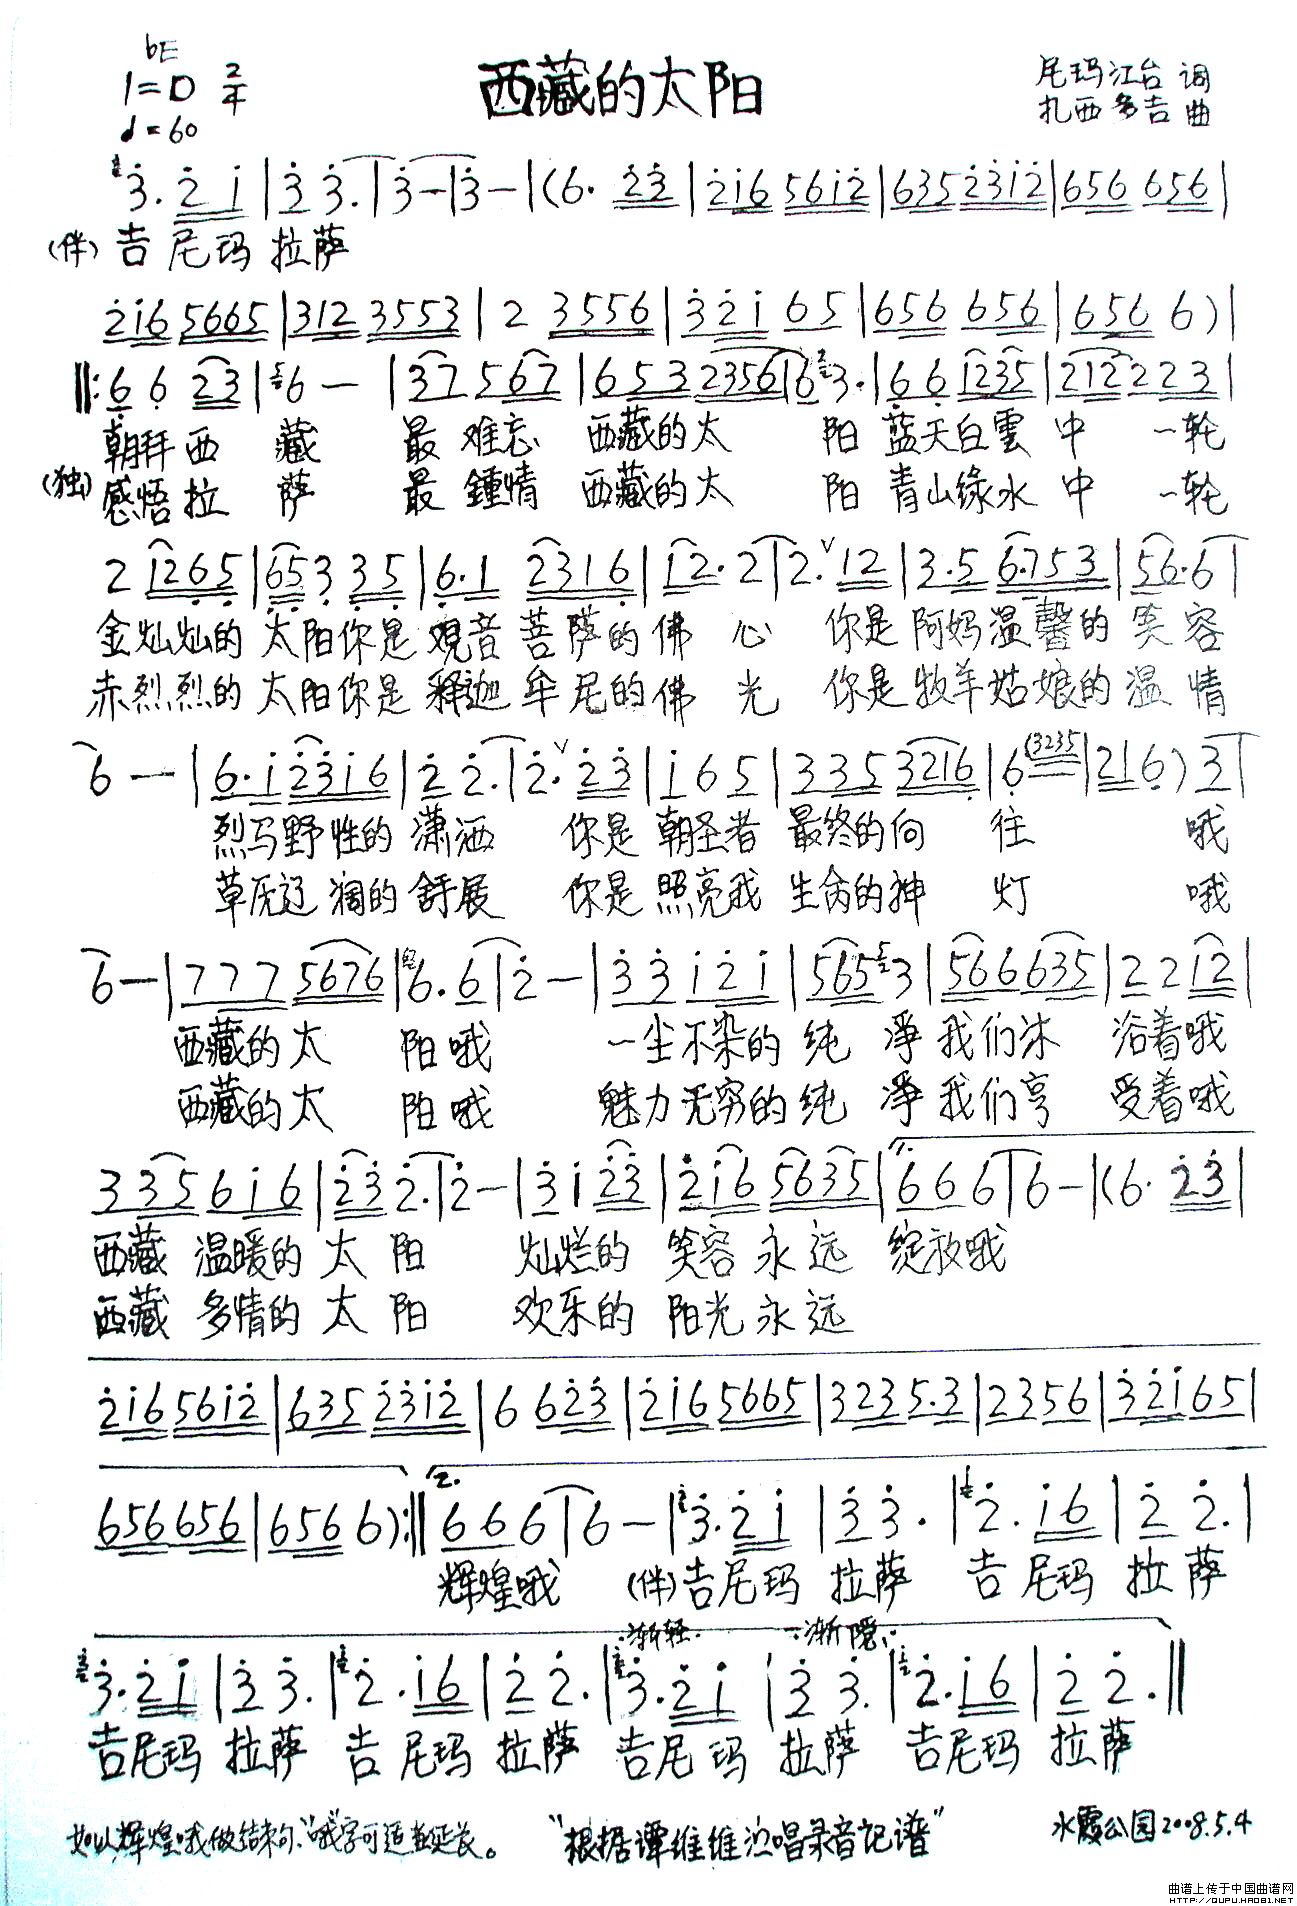 bE
1=D 2/4
♩=60
西藏的太阳
尼玛江台 词
扎西多吉 曲
3. 2 1 | 3 3. | 3 - | 3 - | (6. 23 | 216 5612 | 635 2312 | 656 656 |
(伴) 吉尼玛拉萨
216 5665 | 312 3553 | 2 3556 | 321 65 | 656 656 | 656 6) |
‖: 6 6 23 | 6 - | 37 567 | 653 2356 | 6 3. | 66 1235 | 212 223 |
朝拜西 藏 最难忘 西藏的太 阳 蓝天白雲中 一轮
(独) 感悟拉 萨 最鍾情 西藏的太 阳 青山綠水中 一轮
2 1265 | 653 35 | 6.1 2316 | 12. 2 | 2. 12 | 3.5 6.753 | 56. 6 |
金灿灿的 太阳你是 观音菩萨的佛心 你是阿妈温馨的笑容
赤烈烈的 太阳你是 释迦牟尼的佛光 你是牧羊姑娘的温情
6 - | 6.1 2316 | 2 2. | 2. 23 | 1 6 5 | 335 3216 | 6 (3235 | 216) 3 |
烈马野性的潇洒 你是朝圣者 最终的向 往 哦
草原辽阔的舒展 你是照亮我 生命的神 灯 哦
6 - | 777 5676 | 6. 6 | 2 - | 33 121 | 565 3 | 566 635 | 22 12 |
西藏的太 阳哦 一尘不染的纯 净我们沐 浴着哦
西藏的太 阳哦 魅力无穷的纯 净我们享 受着哦
335 616 | 23 2. | 2 - | 31 23 | 216 5635 | 1. 66 6 | 6 - | (6. 23 |
西藏 温暖的太阳 灿烂的 笑容永远 绽放哦
西藏 多情的太阳 欢乐的 阳光永远
216 5612 | 635 2312 | 6 623 | 216 5665 | 323 5.3 | 2356 | 321 65 |
656 656 | 656 6) :‖ 2. 66 6 | 6 - | 3. 21 | 3 3. | 2. 16 | 2 2. |
辉煌哦 (伴)吉尼玛 拉萨 吉尼玛 拉萨
渐轻 渐隐
3. 21 | 3 3. | 2. 16 | 2 2. | 3. 21 | 3 3. | 2. 16 | 2 2. ‖
吉尼玛 拉萨 吉尼玛 拉萨 吉尼玛 拉萨 吉尼玛 拉萨
如以辉煌哦做结束句、"哦"字可适当延长。 "根据谭维维演唱录音记谱" 水霞公园2008.5.4
曲谱上传于中国曲谱网
HTTP://QUPU.HAO81.NET